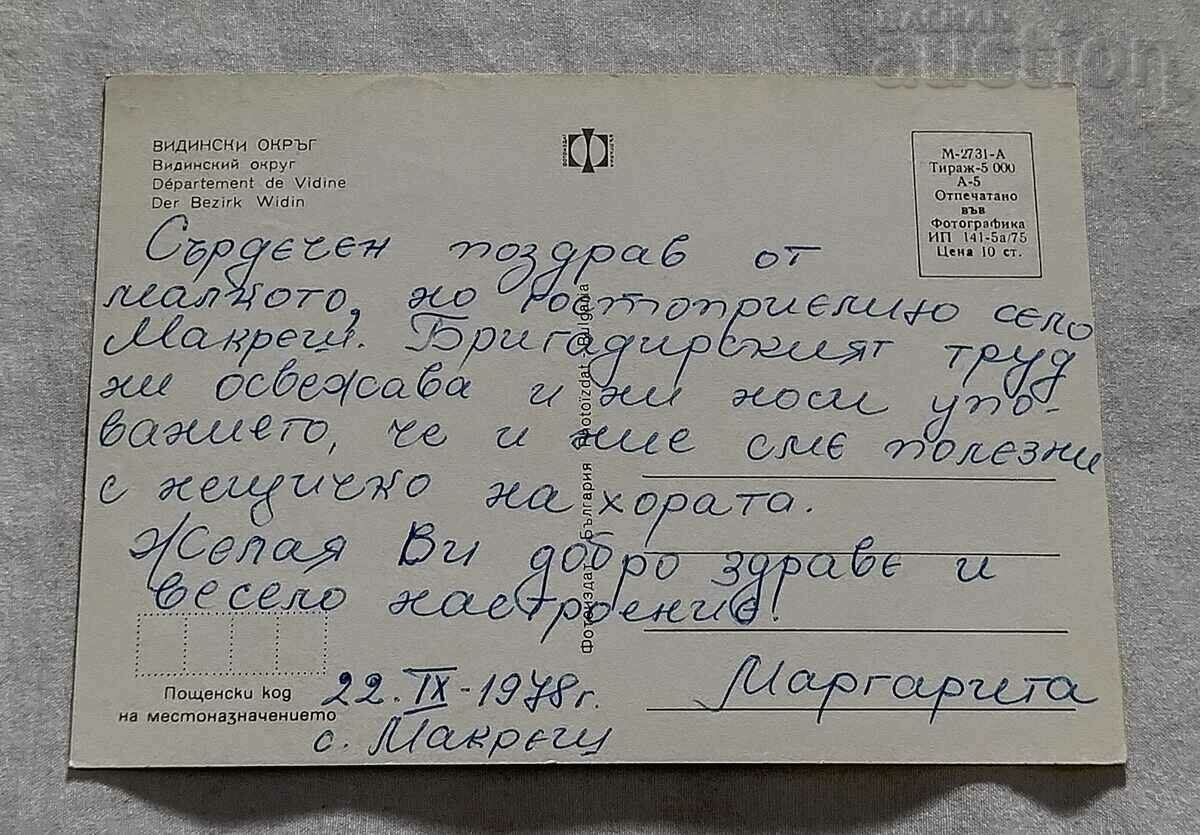 ВИДИНСКИ ОКРЪГ
Видинский округ
Département de Vidine
Der Bezirk Widin
М-2731-А
Тираж-5 000
А-5
Отпечатано
във
Фотографика
ИП 141-5а/75
Цена 10 ст.
Сърдечен поздрав от
малкото, но гостоприемно село
Макреш. Бригадирският труд
ни освежава и ни носи упо-
ванието, че и ние сме полезни
с нещичко на хората.
Желая Ви добро здраве и
весело настроение!
Маргарита
22.IX-1978г.
с. Макреш
Пощенски код
на местоназначението
Фотоиздат България Photoizdat Bulgaria